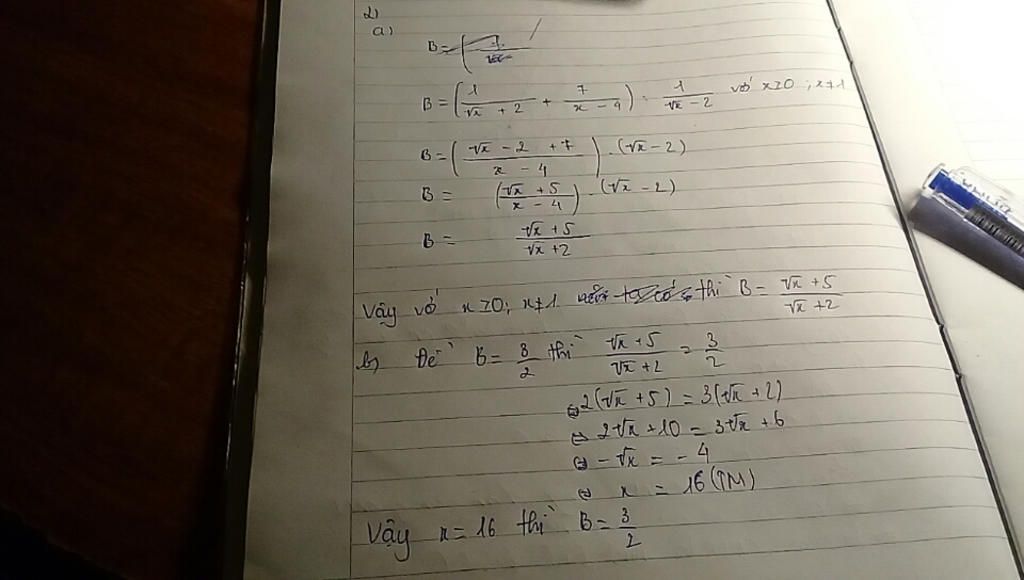 2)
a)
B = (1/√x
B = (1/(√x + 2) + 7/(x - 4)) : 1/(√x - 2) với x≥0 ; x≠1
B = ((√x - 2 + 7)/(x - 4)) . (√x - 2)
B = ((√x + 5)/(x - 4)) . (√x - 2)
B = (√x + 5)/(√x + 2)
Vậy với x≥0; x≠1 thì B = (√x + 5)/(√x + 2)
b) Để B = 3/2 thì (√x + 5)/(√x + 2) = 3/2
⇔ 2(√x + 5) = 3(√x + 2)
⇔ 2√x + 10 = 3√x + 6
⇔ -√x = -4
⇔ x = 16 (TM)
Vậy x = 16 thì B = 3/2